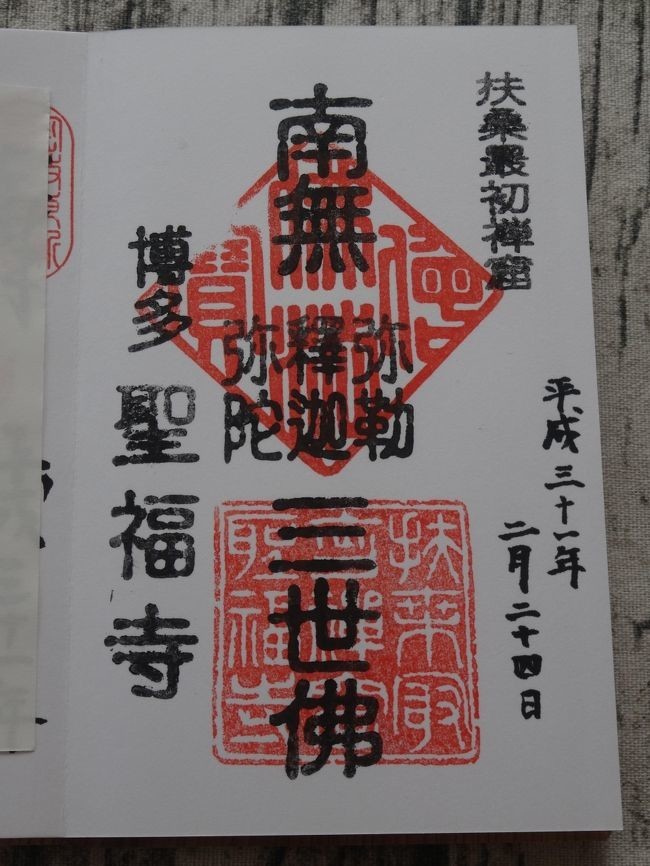 扶桑最初禅窟
平成三十一年
二月二十四日
南無
弥勒
釋迦
弥陀
三世佛
博多
聖福寺
扶桑最
聖福寺